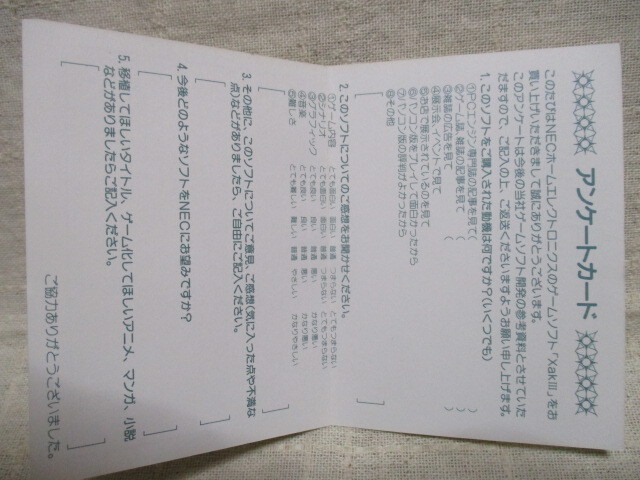 アンケートカード
このたびはNECホームエレクトロニクスのゲームソフト「XakⅢ」をお
買い上げいただきまして誠にありがとうございます。
このアンケートは今後の当社ゲームソフト開発の参考資料とさせていた
だきますので、ご記入の上、ご返送くださいますようお願い申し上げます。
1. このソフトをご購入された動機は何ですか?(いくつでも)
①PCエンジン専門誌の記事を見て( )
②ゲーム誌、雑誌の記事を見て( )
③雑誌の広告を見て( )
④展示会、イベントで見て
⑤お店で展示されているのを見て
⑥パソコン版をプレイして面白かったから
⑦パソコン版の評判がよかったから
⑧その他[ ]
2. このソフトについてのご感想をお聞かせください。
①ゲーム内容 とても面白い 面白い 普通 つまらない とてもつまらない
②シナリオ とても面白い 面白い 普通 つまらない とてもつまらない
③グラフィック とても良い 良い 普通 悪い かなり悪い
④音楽 とても良い 良い 普通 悪い かなり悪い
⑤難しさ とても難しい 難しい 普通 やさしい かなりやさしい
3. その他に、このソフトについてご意見、ご感想(気に入った点や不満な
点)などがありましたら、ご自由にご記入ください。
[ ]
4. 今後どのようなソフトをNECにお望みですか?
[ ]
5. 移植してほしいタイトル、ゲーム化してほしいアニメ、マンガ、小説
などがありましたらご記入ください。
[ ]
ご協力ありがとうございました。